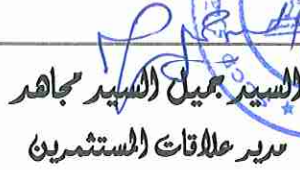 السيد جميل السيد مجاهد
مدير علاقات المستثمرين